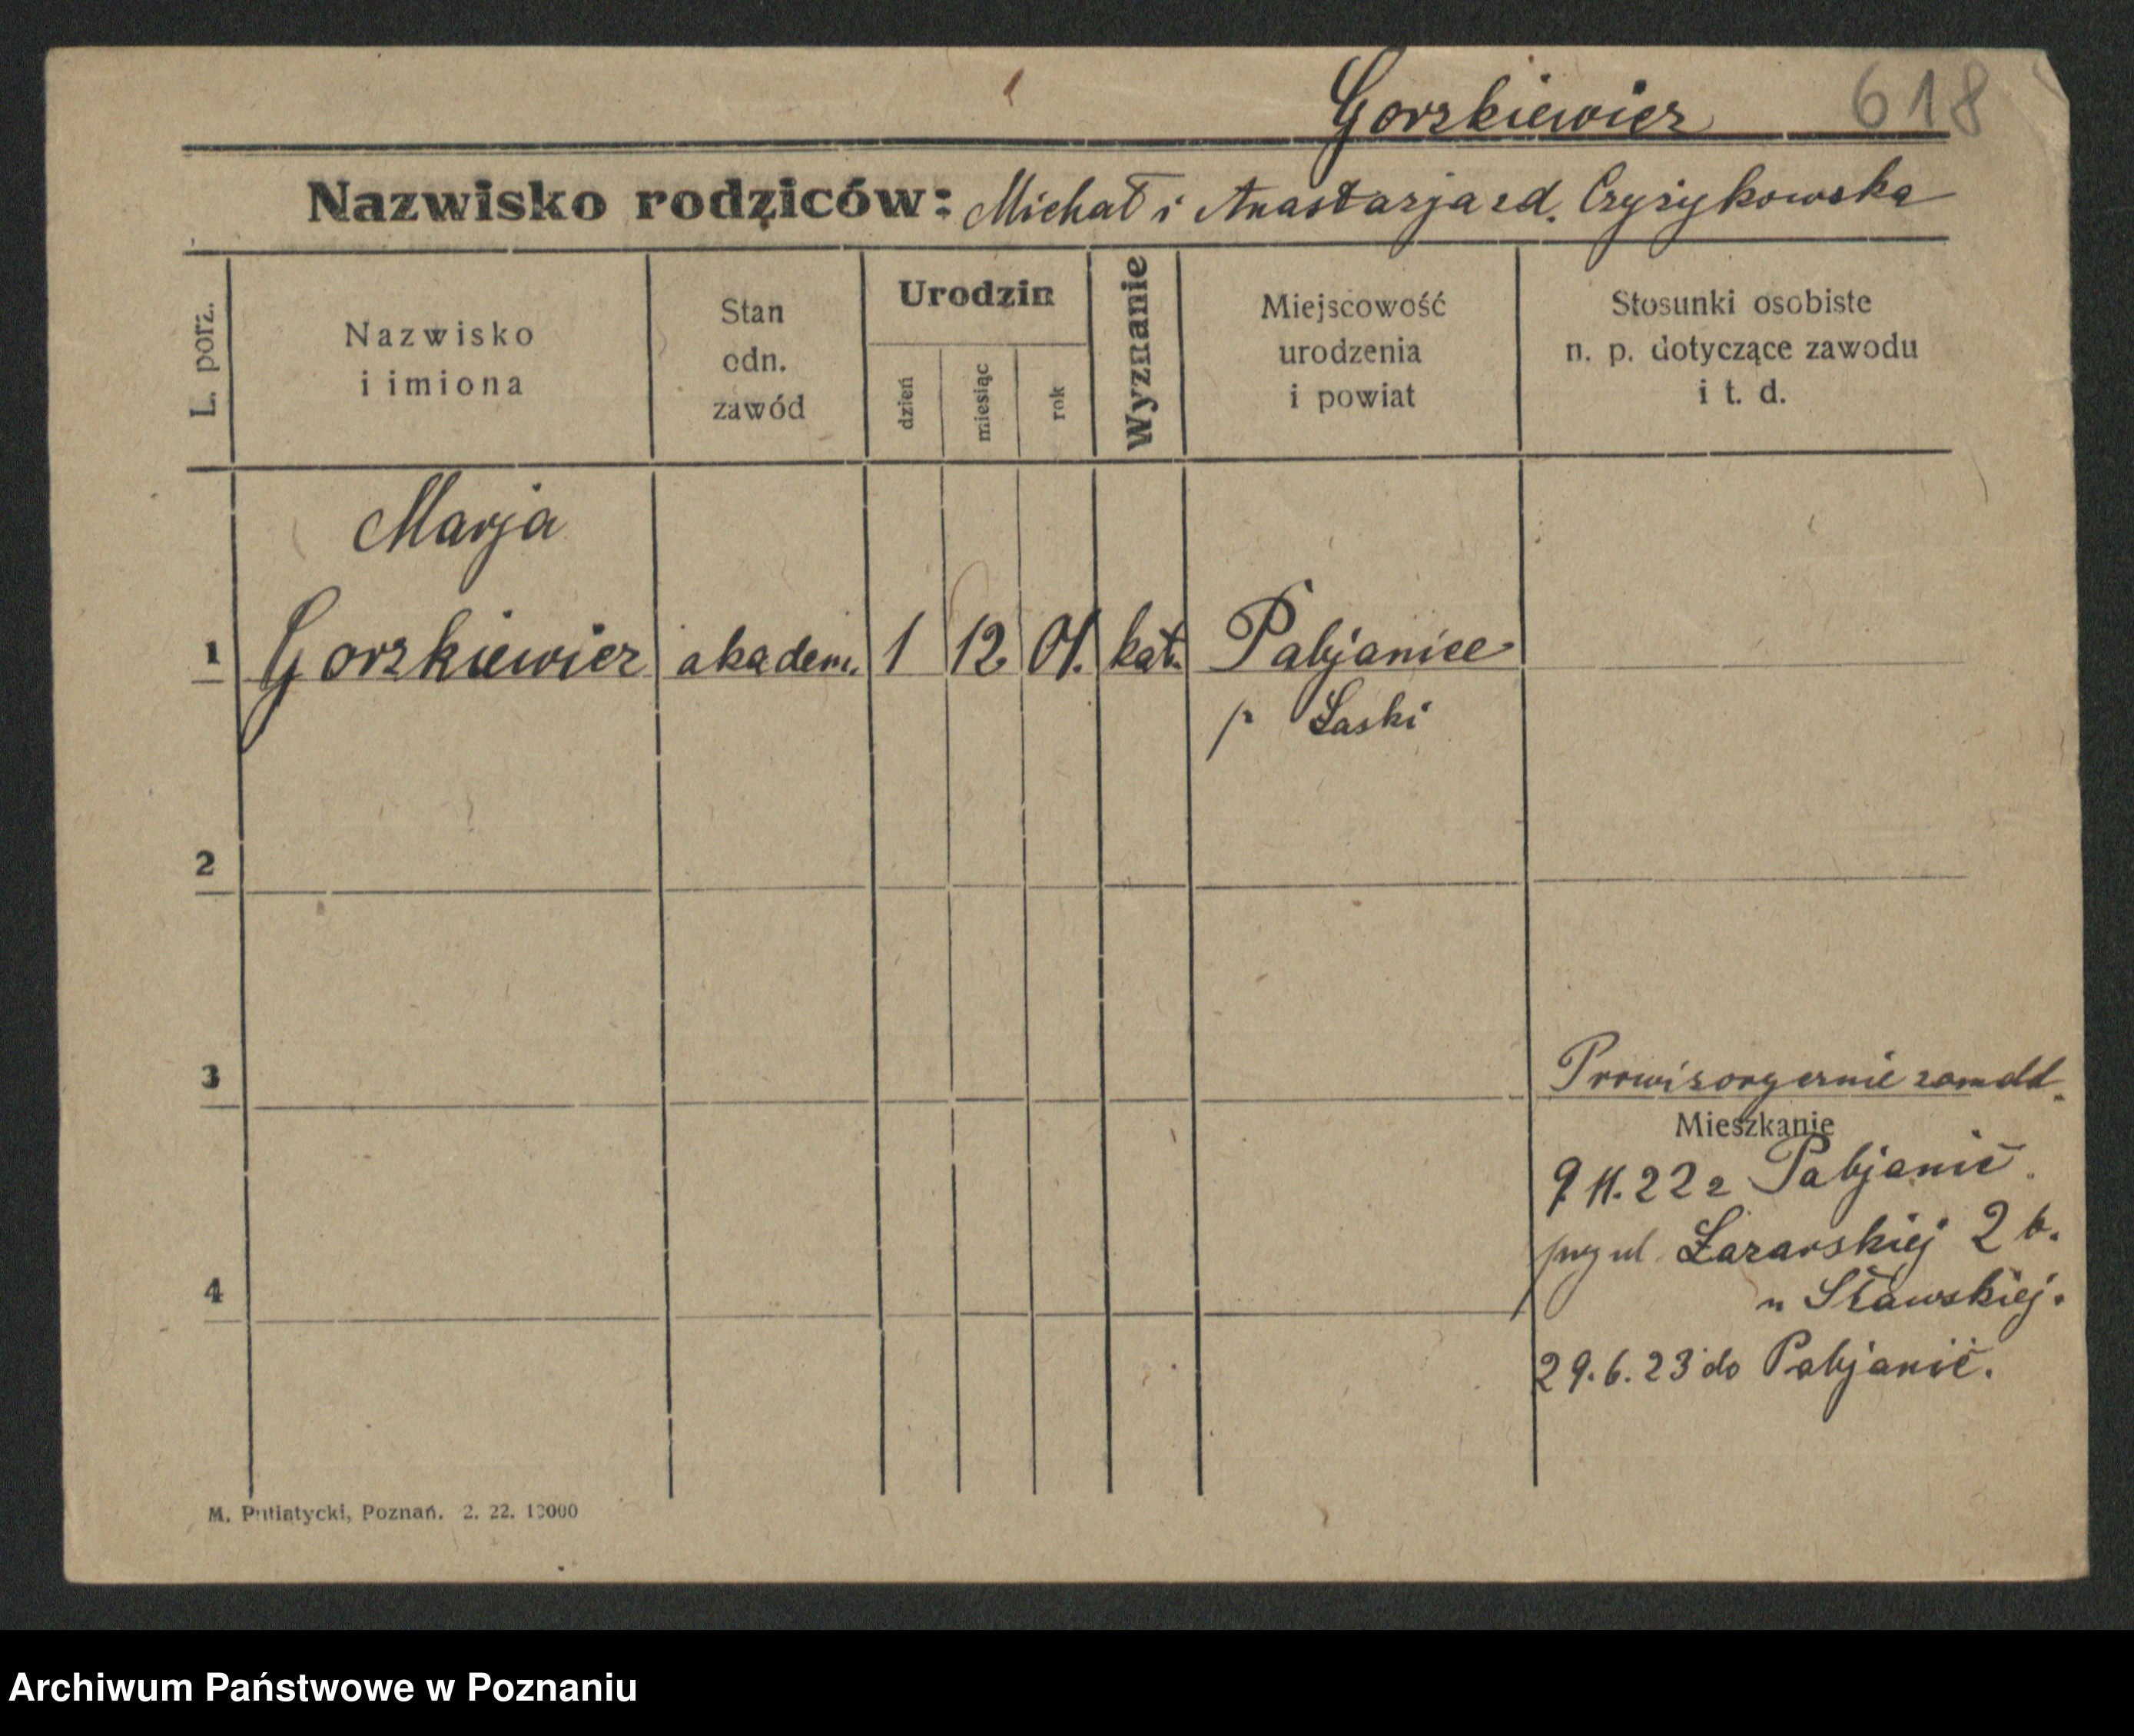 Gorzkiewicz 618
Nazwisko rodziców: Michał i Anastazja zd. Czyżykowska
L. porz.
Nazwisko
i imiona
Stan
odn.
zawód
Urodzin
dzień
miesiąc
rok
Wyznanie
Miejscowość
urodzenia
i powiat
Stosunki osobiste
n. p. dotyczące zawodu
i t. d.
Marja
1 Gorzkiewicz akadem. 1 12 01. kat. Pabjanice
p Łaski
2
3
Mieszkanie
9 11. 22 z Pabjanic.
przy ul. Łazarskiej 2 b.
u Sławskiej.
4
29. 6. 23 do Pabjanic.
M. Putiatycki, Poznań. 2. 22. 10000
Archiwum Państwowe w Poznaniu